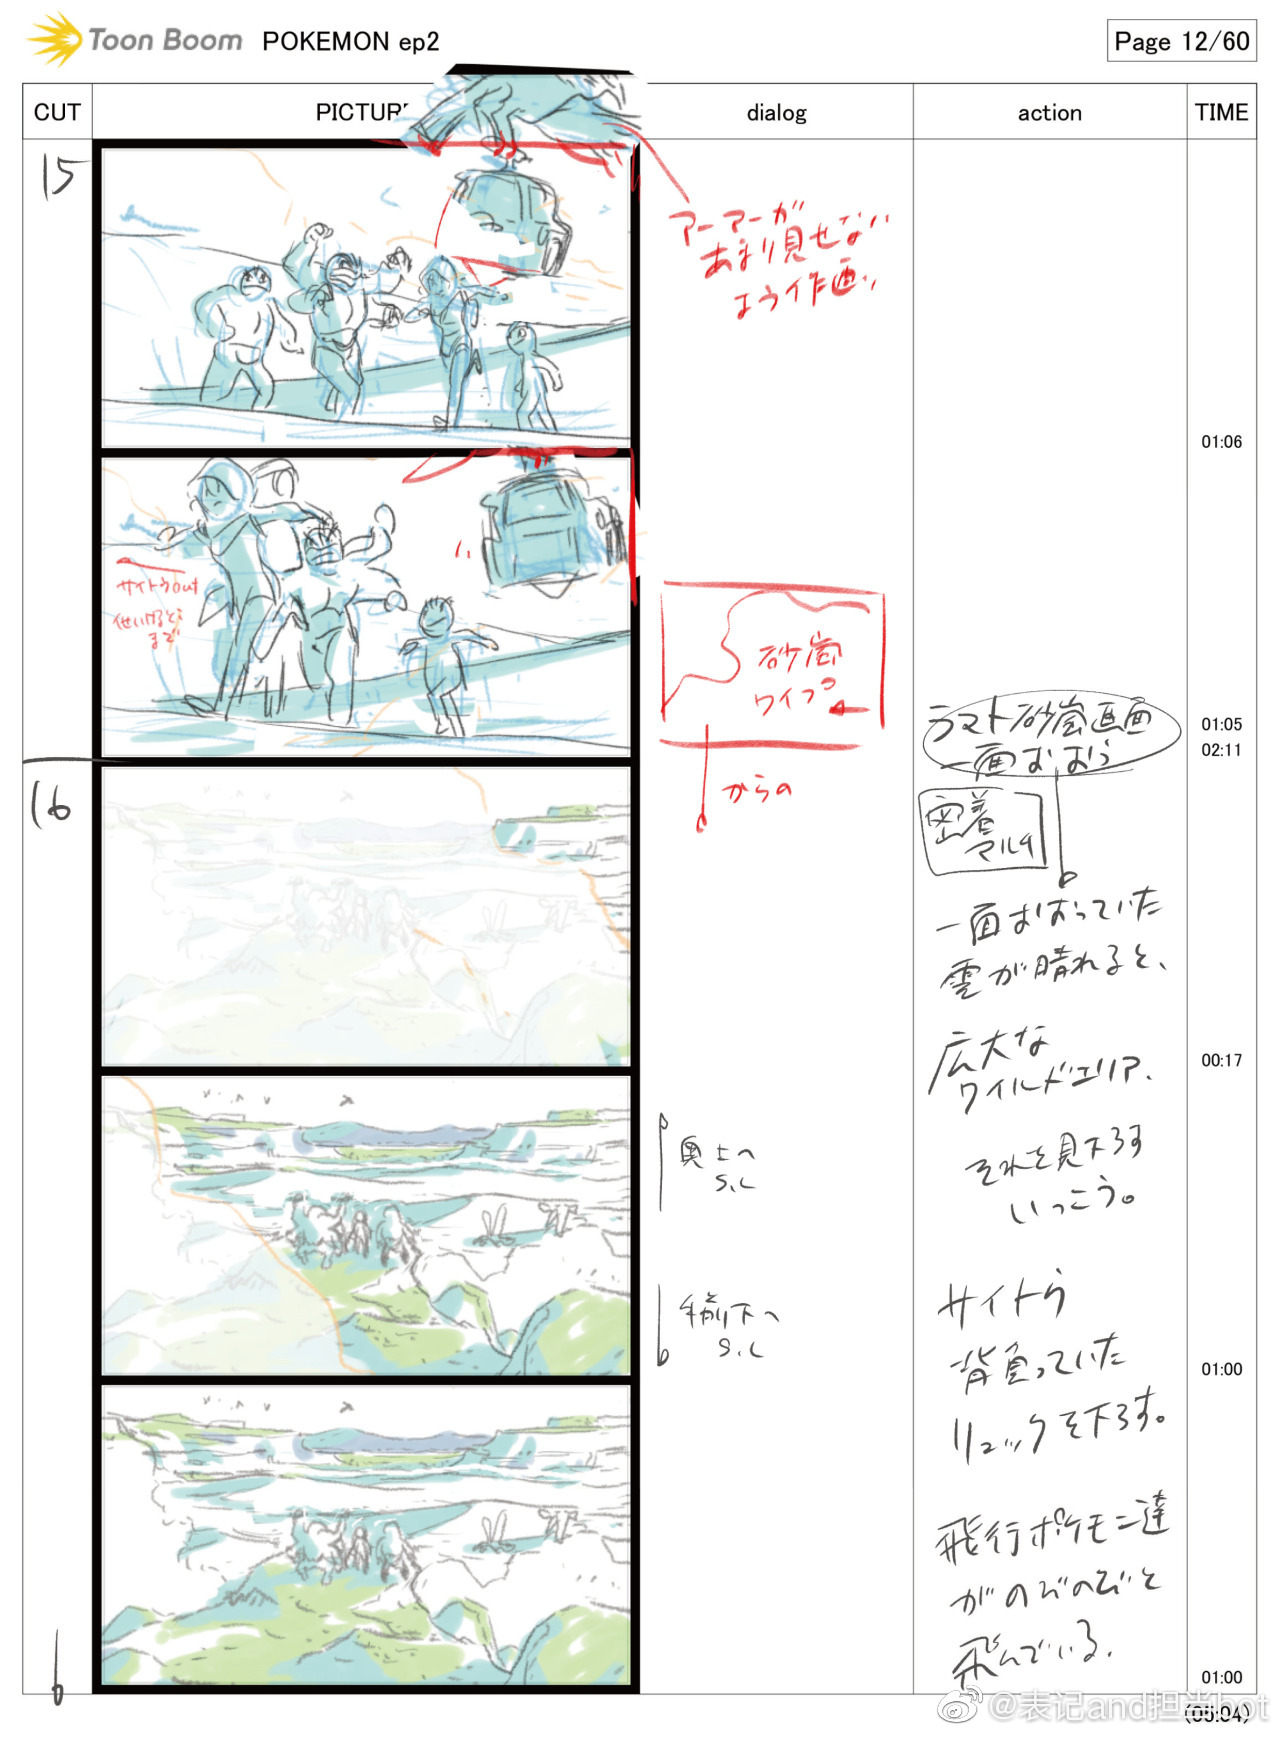 Toon Boom POKEMON ep2
Page 12/60
CUT
PICTURE
dialog
action
TIME
15
アーマーが
あまり見せない
よう作画
01:06
サイトウout
まで
砂嵐
ワイプ
からの
ラスト砂嵐画面
一面おおう
01:05
02:11
16
密着
マルチ
一面おおっていた
雲が晴れると、
広大な
ワイルドエリア.
00:17
奥上へ
S.L
それを見下ろす
いっこう。
手前下へ
S.L
サイトウ
背負っていた
リュックを下ろす。
01:00
飛行ポケモン達
がのびのびと
飛んでいる.
01:00
(05:04)
@表记and担当bot